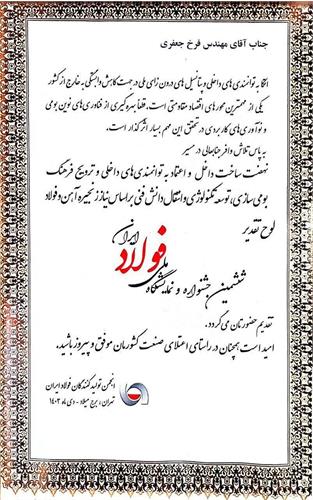 جناب آقای مهندس فرخ جعفری
اتکا به توانمندی های داخلی و پتانسیل های درون زای ملی در جهت کاهش وابستگی به خارج از کشور
یکی از مهمترین محورهای اقتصاد مقاومتی است. قطعاً بهره گیری از فناوری های نوین بومی
و نوآوری های کاربردی در تحقق این مهم بسیار اثر گذار است.
به پاس تلاش وافر جنابعالی در مسیر
نهضت ساخت داخل و اعتماد به توانمندی های داخلی و ترویج فرهنگ
بومی سازی، توسعه تکنولوژی و انتقال دانش فنی بر اساس نیاز زنجیره آهن و فولاد
لوح تقدیر
ششمین جشنواره و نمایشگاه ملی فولاد ایران
تقدیم حضورتان می گردد.
امید است همچنان در راستای اعتلای صنعت کشورمان موفق و پیروز باشید.
انجمن تولید کنندگان فولاد ایران
تهران، برج میلاد - دی ماه ۱۴۰۳